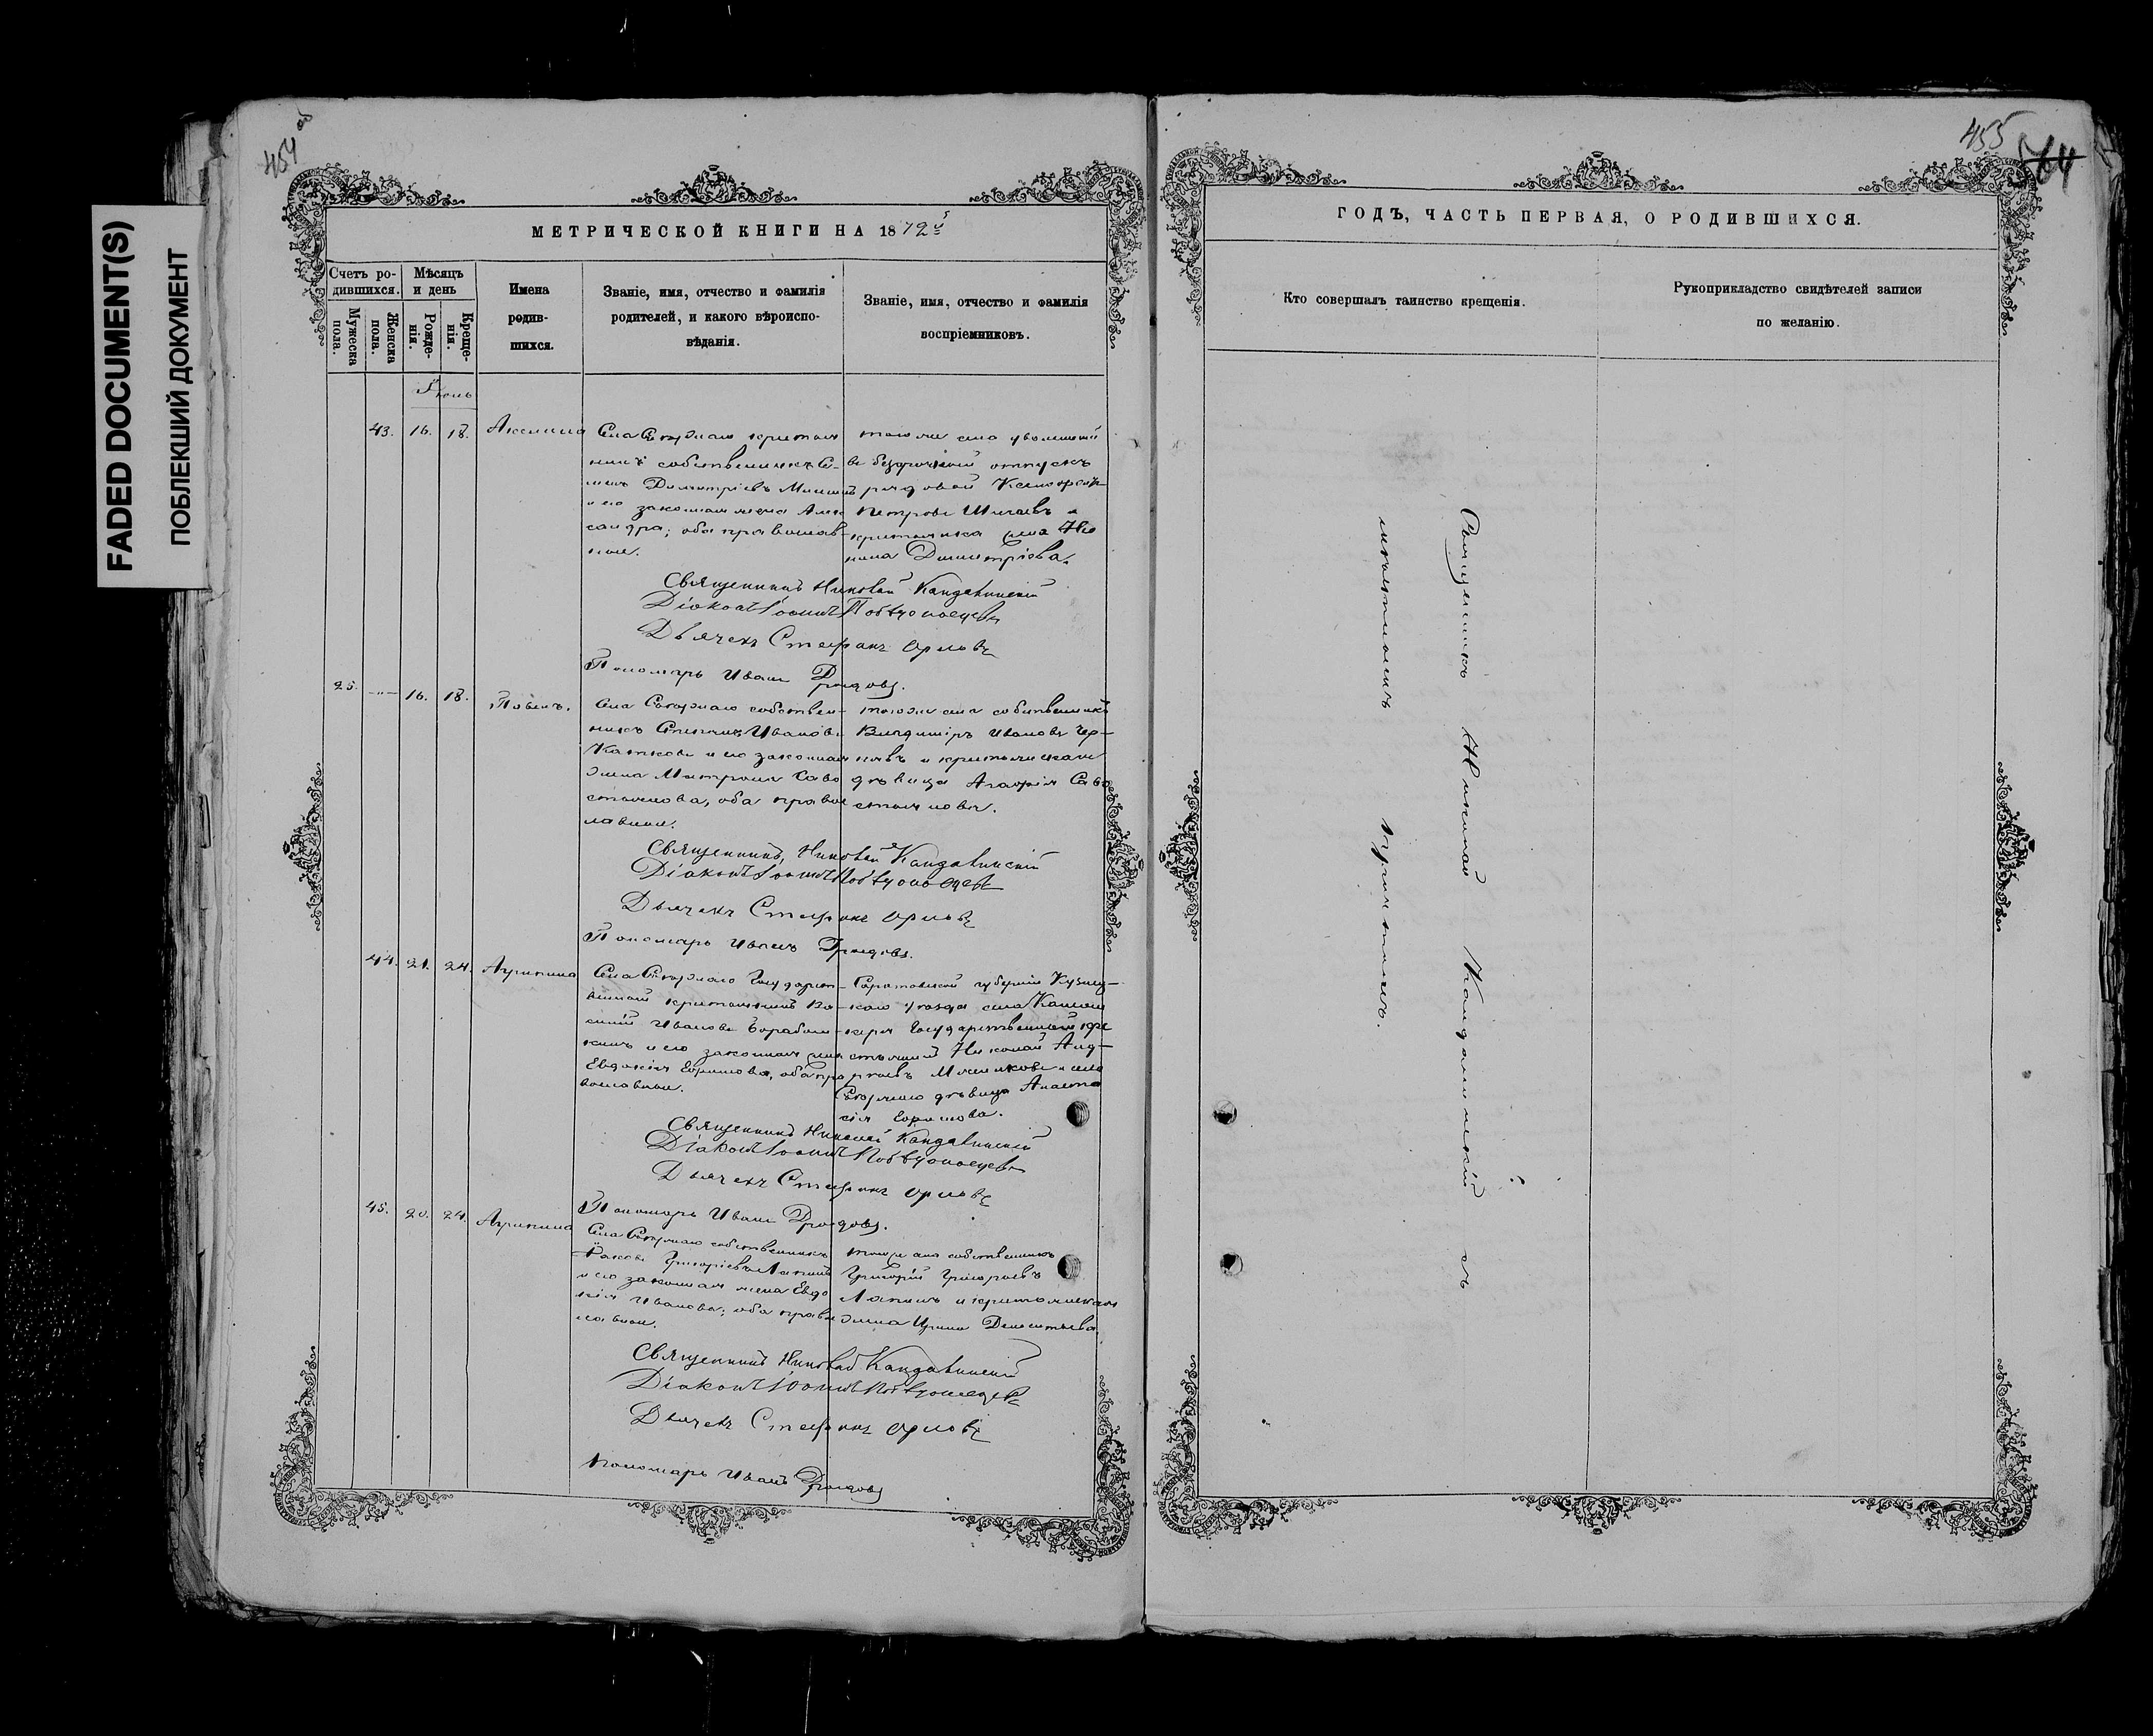 FADED DOCUMENT(S)
ПОБЛЕКШИЙ ДОКУМЕНТ
454 об
МЕТРИЧЕСКОЙ КНИГИ НА 1872й
Счетъ ро-
дившихся.
Мужеска
пола.
Женска
пола.
Мѣсяцъ
и день
Рожде-
нія.
Креще-
нія.
Имена
родив-
шихся.
Званіе, имя, отчество и фамилія
родителей, и какого вѣроиспо-
вѣданія.
Званіе, имя, отчество и фамилія
воспріемниковъ.
43. 16. 18. Акилина
Села крестьян
нинъ собственникъ Се-
менъ Димитріевъ
и его законная жена Алек
сандра; оба православ-
ные.
тогоже села уволенный
въ безсрочный отпускъ
рядовой
Петровъ и
крестьянка села
Димитріева.
Священникъ Николай Кандалинскій
Діаконъ Іоаннъ Побѣдоносцевъ
Дьячекъ Стефанъ Орловъ
Пономарь Иванъ Дроздовъ.
25. -"- 16. 18. Павелъ.
Села собствен-
никъ Степанъ Ивановъ
Катковъ и его законная
жена Матрона Сава
стьянова, оба право
лавные.
тогоже села собственникъ
Владиміръ Ивановъ Чер-
новъ и крестьянская
дѣвица Агафія Сава
стьянова.
Священникъ Николай Кандалинскій
Діаконъ Іоаннъ Побѣдоносцевъ
Дьячекъ Стефанъ Орловъ
Пономарь Иванъ Дроздовъ.
44. 21. 24. Агрипина
Села Государст-
венный крестьянинъ Ва-
силій Ивановъ
и его законная жена
Евдокія Ефимова, оба пра
вославные.
Саратовской губерніи Кузнец-
каго уѣзда села
Государственный кре
стьянинъ Николай Анд-
реевъ и села
дѣвица Анаста
сія Ефимова.
Священникъ Николай Кандалинскій
Діаконъ Іоаннъ Побѣдоносцевъ
Дьячекъ Стефанъ Орловъ
Пономарь Иванъ Дроздовъ.
45. 20. 24. Агрипина
Села собственникъ
Яковъ Григорьевъ Лапинъ
и его законная жена Евдо
кія Иванова; оба правос
лавные.
тогоже села собственникъ
Григорій Григорьевъ
Лапинъ и крестьянская
жена Ирина Дементьева.
Священникъ Николай Кандалинскій
Діаконъ Іоаннъ Побѣдоносцевъ
Дьячекъ Стефанъ Орловъ
Пономарь Иванъ Дроздовъ
455
64
ГОДЪ, ЧАСТЬ ПЕРВАЯ, О РОДИВШИХСЯ.
Кто совершалъ таинство крещенія.
Рукоприкладство свидѣтелей записи
по желанію.
Священникъ Николай Кандалинскій съ
причтомъ.